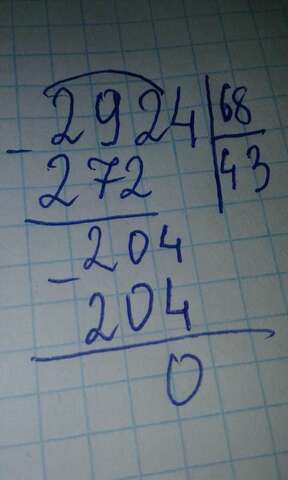 2924 68
- 272 43
- 204
204
0